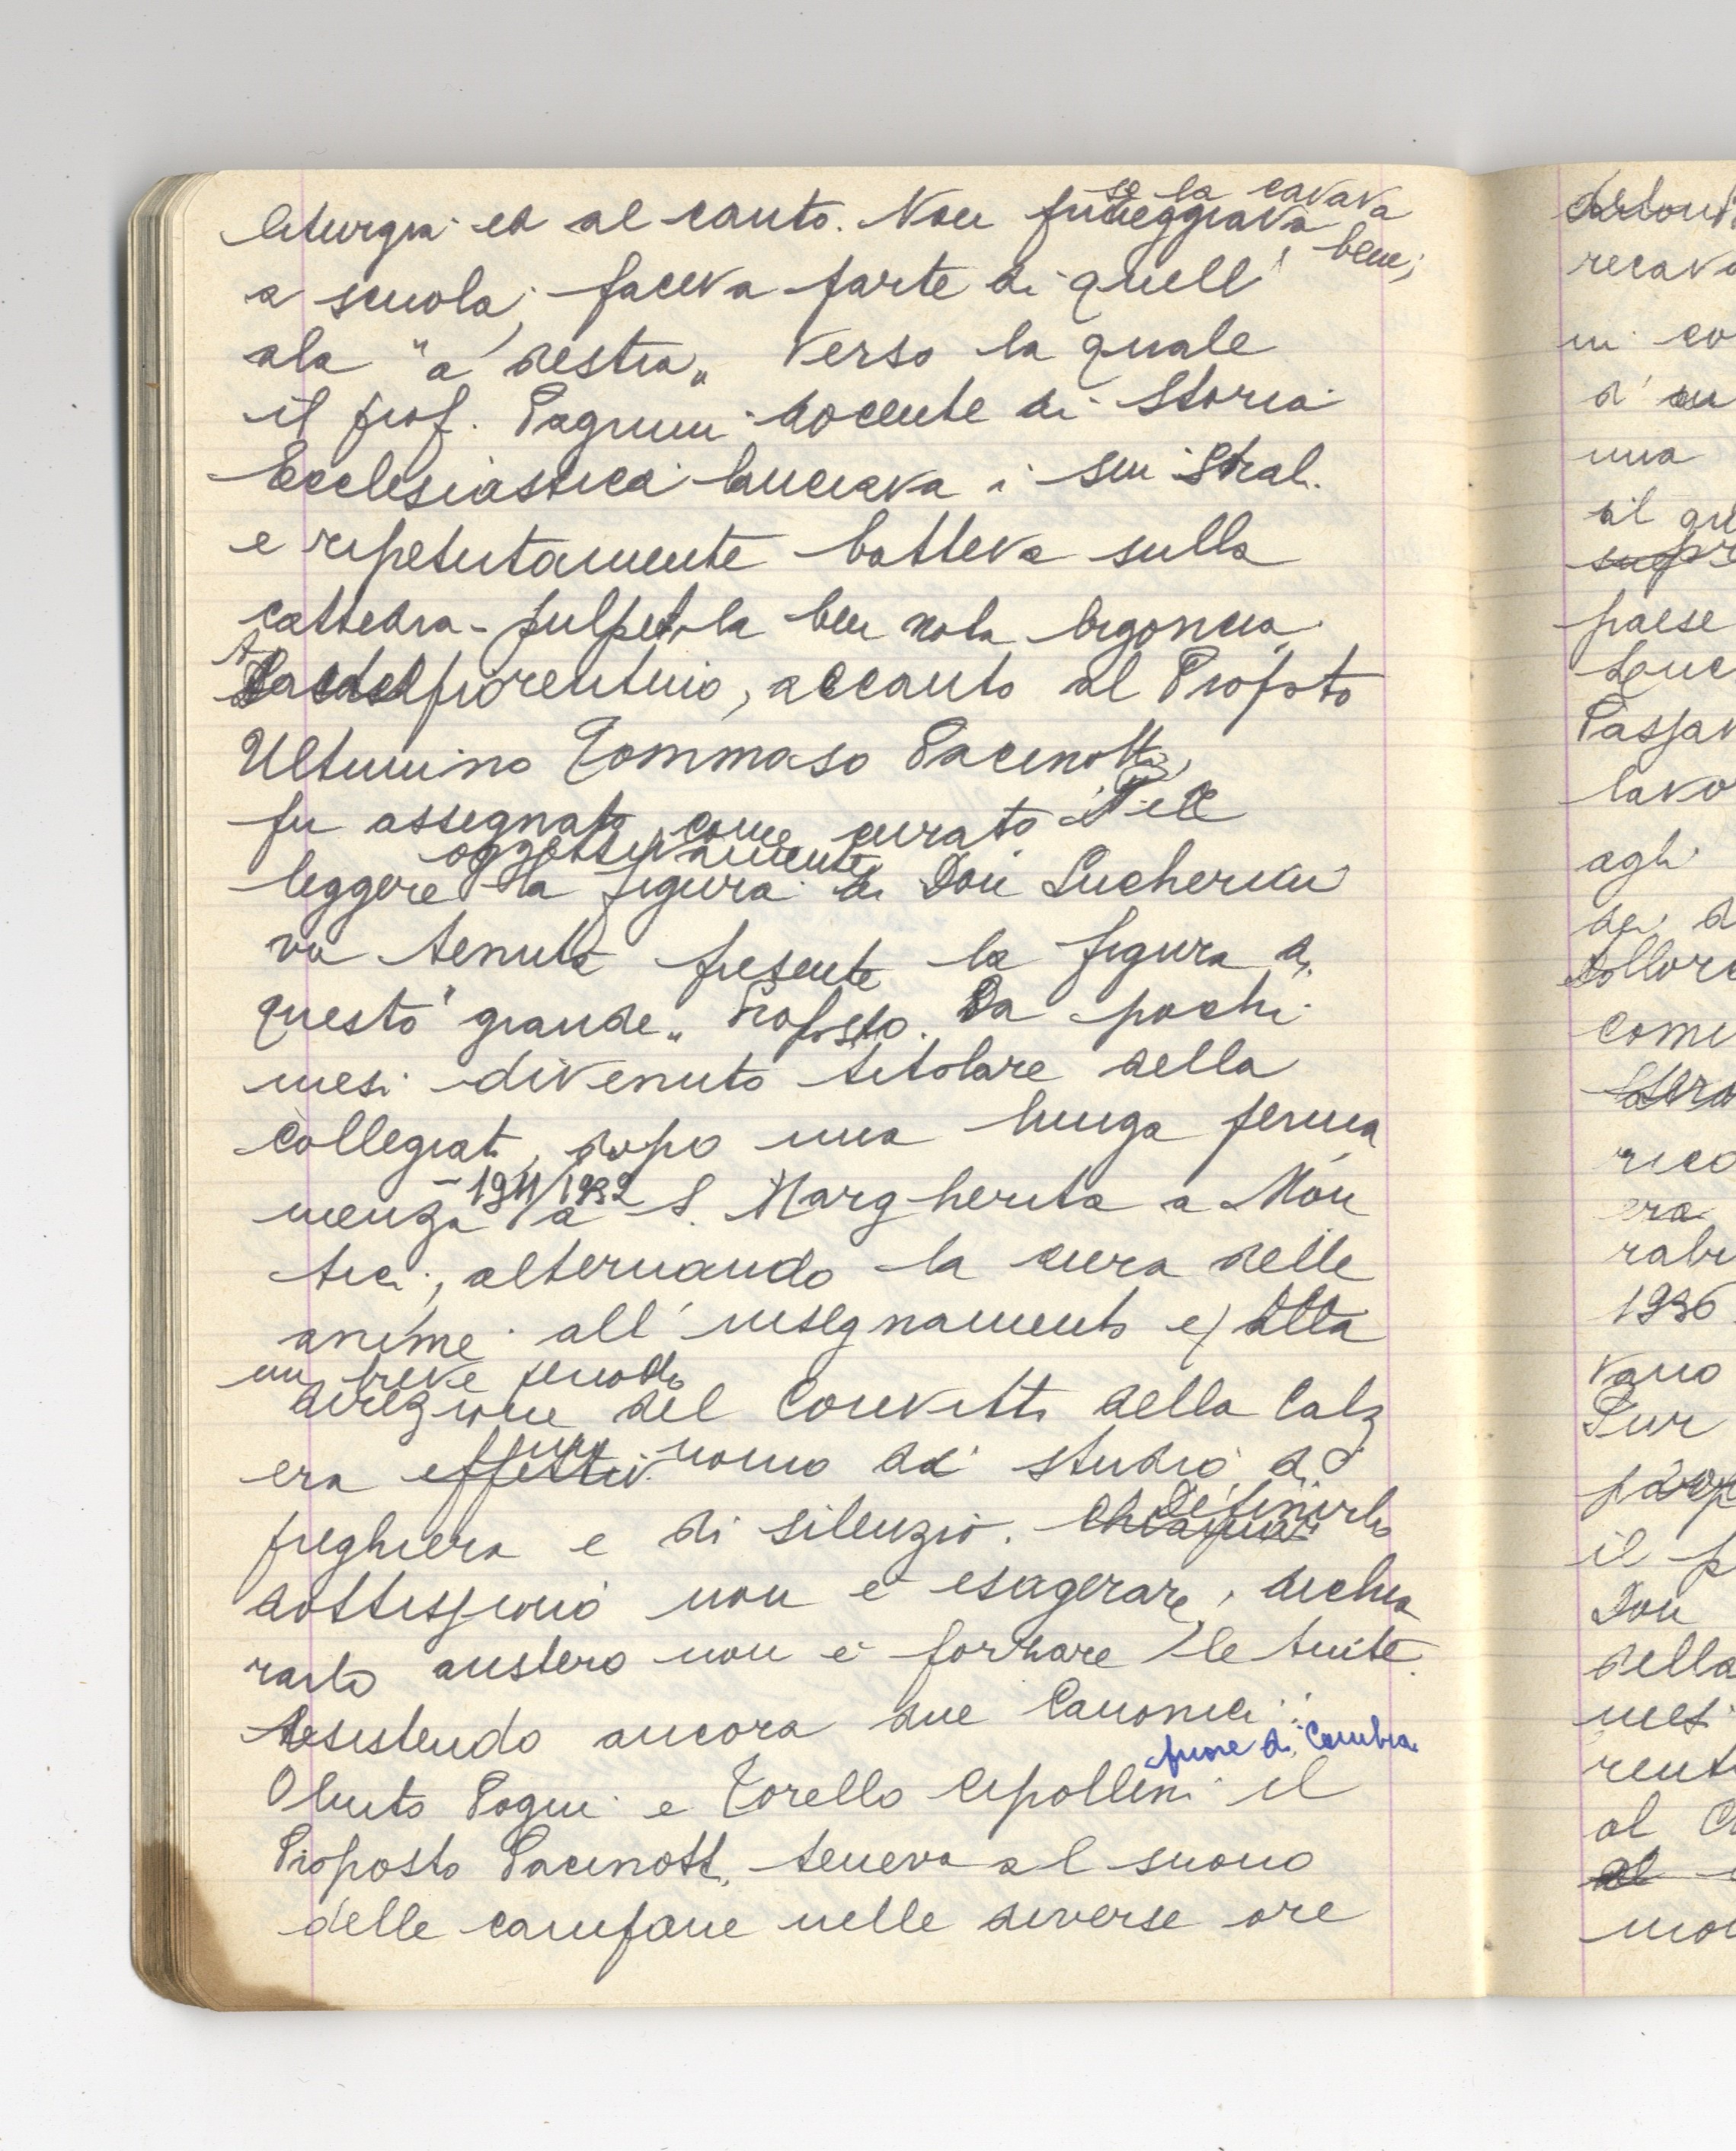 liturgia ed al canto. Non
se la cavava
bene;
a scuola; faceva parte di quell'
ala "a destra" verso la quale
il prof. Pagnini docente di Storia
Ecclesiastica lanciava i suoi strali
e ripetutamente batteva sulla
cattedra-pulpito la ben nota bigoncia.
A
fiorentino, accanto al Proposto
Ultimino Tommaso Pacinotti,
fu assegnato come curato. Per
oggettivamente
leggere la figura di Don Lucherini
va tenuta presente la figura di
questo "grande" Proposto. Da pochi
mesi divenuto titolare della
collegiata, dopo una lunga perma
- 1911/1932
nenza a S. Margherita a Mon
tici, alternando la cura delle
anime all'insegnamento e) alla
un breve periodo
direzione del Convitto della Calz
era uomo di studio di
preghiera e di silenzio.
Definirlo
dottissimo non è esagerare, dichia
rarlo austero non è forzare le tinte.
Resistendo ancora due Canonici:
priore di Cambia
Olinto Pogni e Torello Cipollini il
Proposto Pacinotti teneva al suono
delle campane nelle diverse ore
recava
una
paese
Passav
lavo
agli
1936
vano
Pur
il p
Don
della
mesi